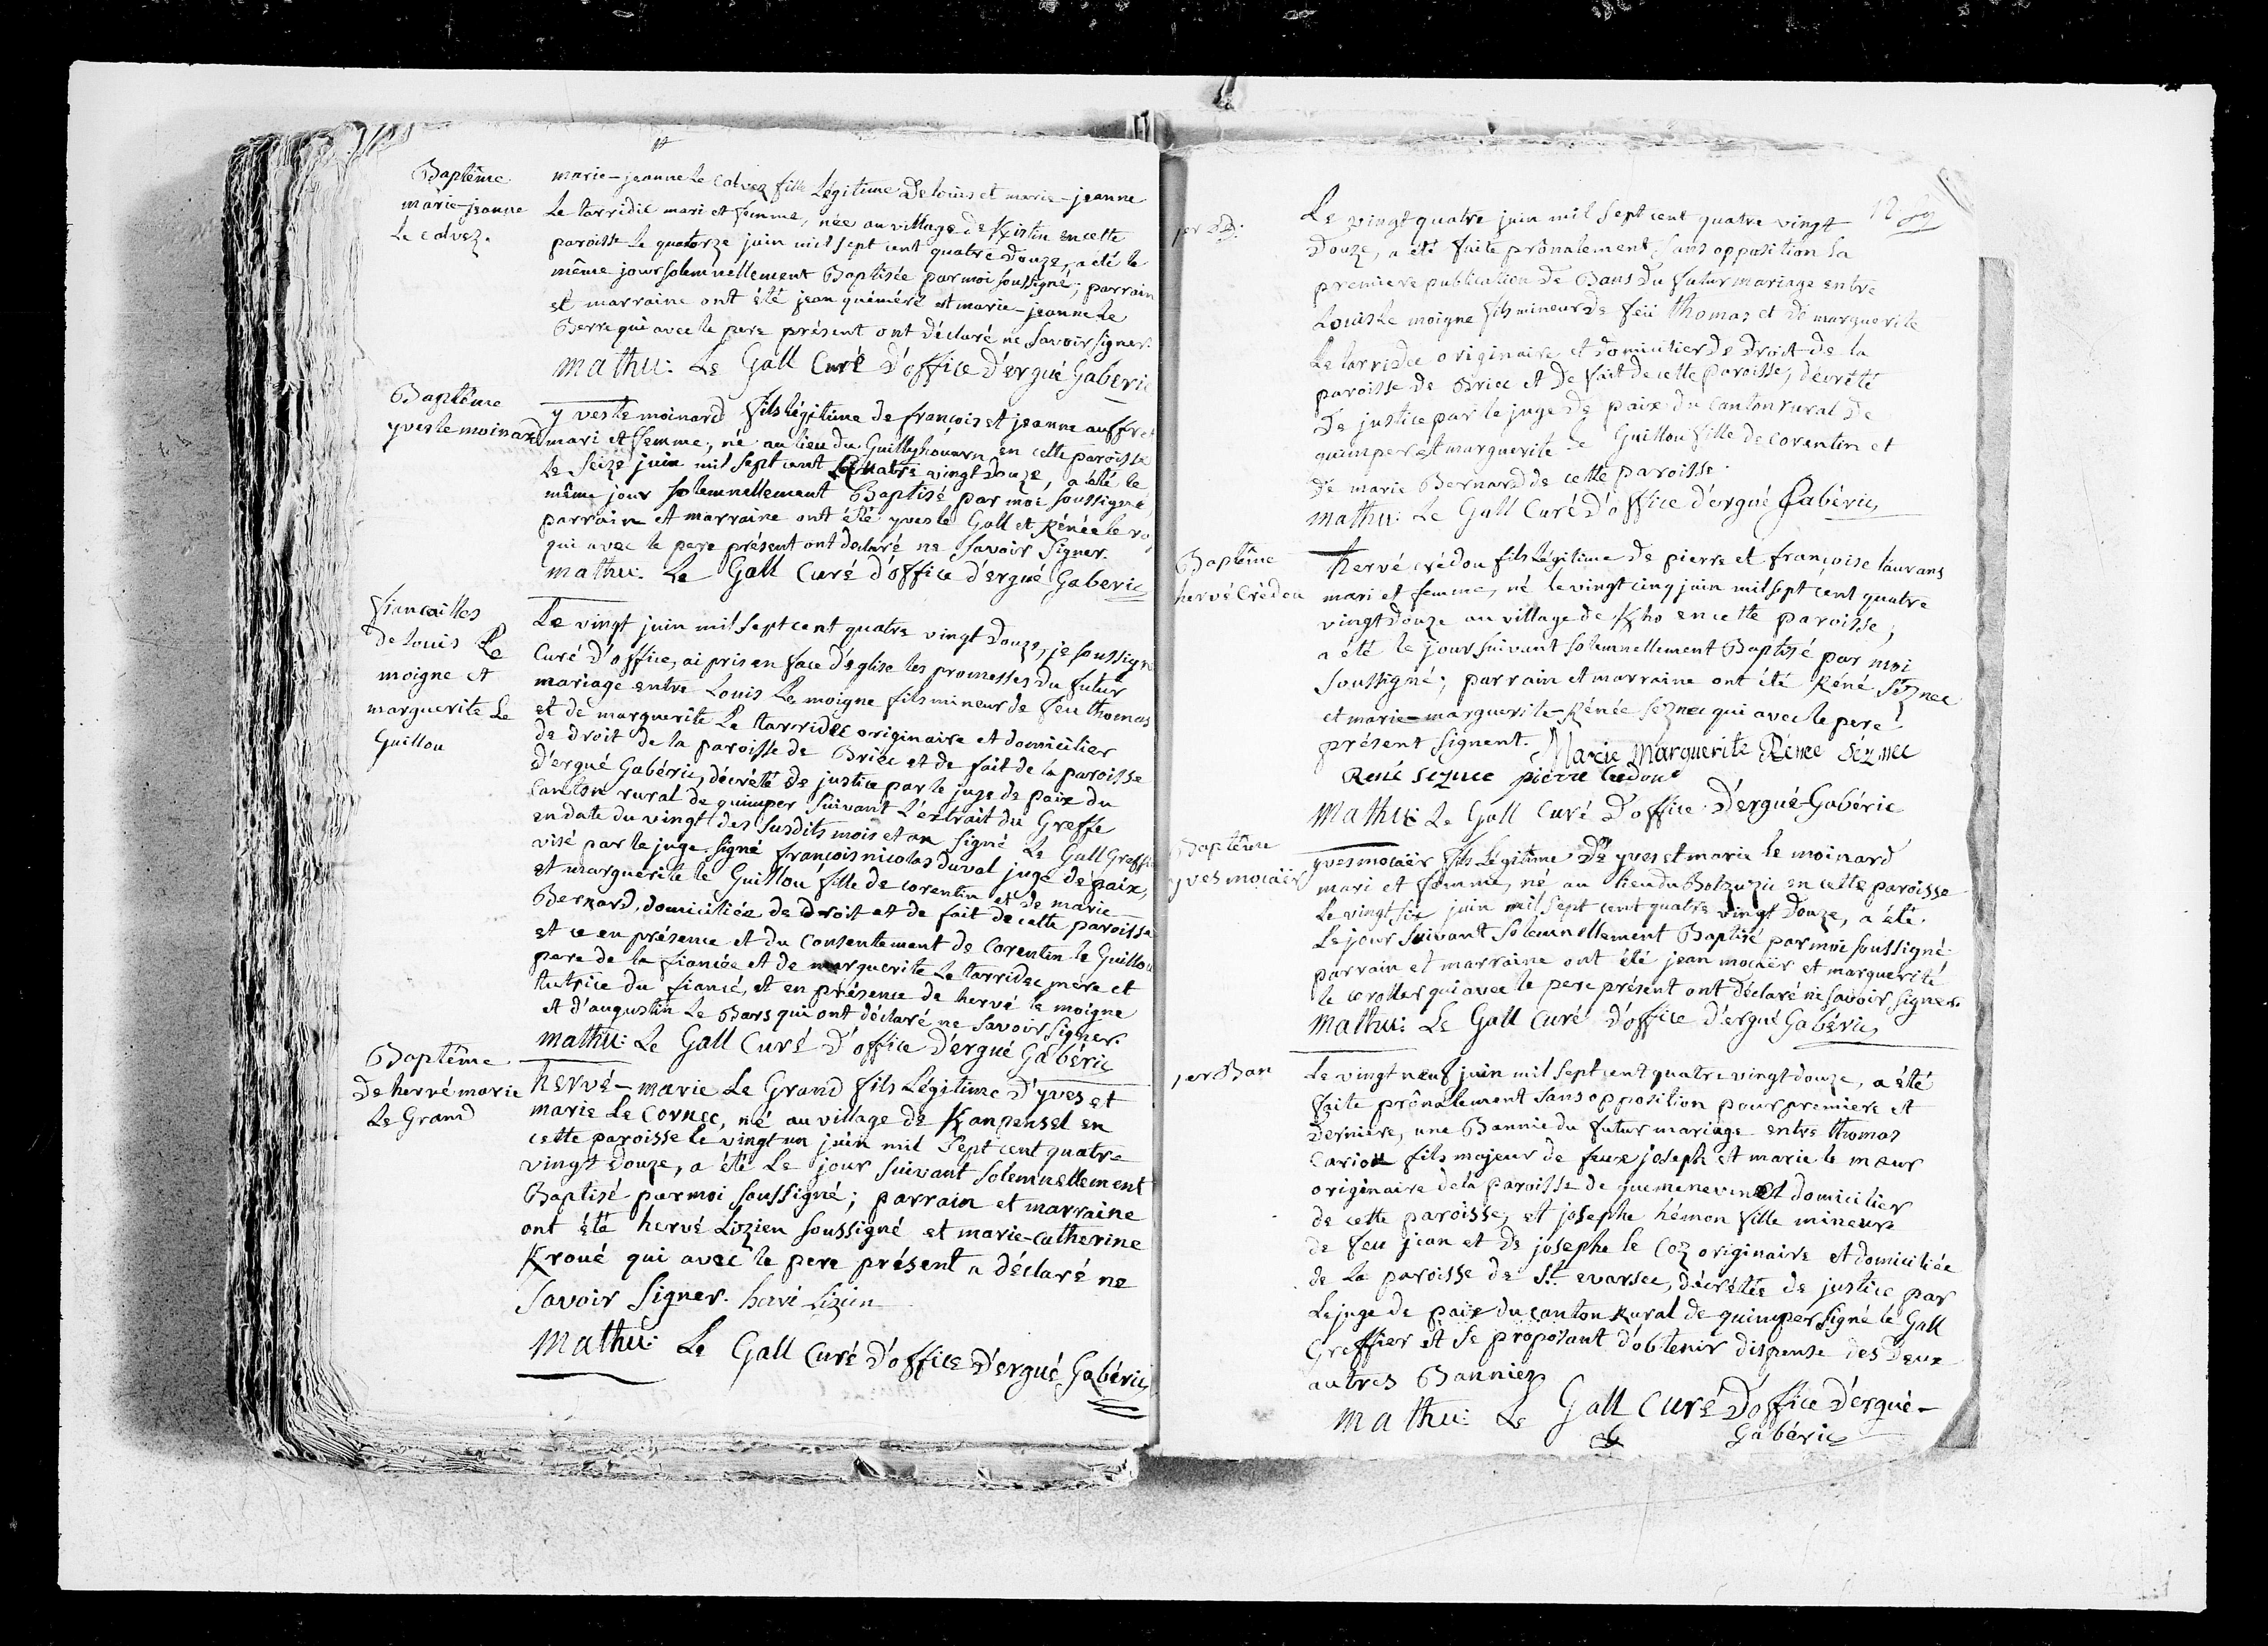 Baptême
marie-jeanne
Le calvez.
marie-jeanne Le calvez fille Légitime De louis et marie-jeanne
Le tarridec mari et femme, née au village de Kistin en cette
paroisse Le quatorze juin mil sept cent quatre Douze, a été le
même jour solemnellement Baptisée par moi soussigné; parrain
et marraine ont été jean quéméré et marie-jeanne Le
Berre qui avec le pere présent ont Déclaré ne Savoir signer.
Mathu: Le Gall Curé D'office D'ergué Gaberic
Baptême
yves le moinard
yves le moinard fils légitime de françois et jeanne auffret
mari et femme, né au lieu du Guillyhouarn en cette paroisse
Le Seize juin mil sept cent quatre vingt Douze, a été le
même jour solemnellement Baptisé par moi soussigné,
parrain et marraine ont été yves le Gall et Rénée le roy
qui avec le pere présent ont declaré ne Savoir Signer.
mathu: Le Gall Curé d'office d'ergué Gaberic
fiancailles
de louis Le
moigne et
marguerite Le
Guillou
Le vingt juin mil sept cent quatre vingt Douze, je soussigné
Curé D'office, ai pris en face d'église les promesses du futur
mariage entre Louis Le moigne fils mineur de feu thomas
et de marguerite Le tarridec originaire et domicilier
de droit de la paroisse de Briec et de fait de la paroisse
D'ergué Gabéric, décrété de justice par le juge de paix du
Canton rural de quimper suivant L'extrait du Greffe
en date du vingt des susdits mois et an signé Le Gall Greffier
visé par le juge. signé françois nicolas duval juge de paix,
et marguerite le Guillou fille de corentin et de marie
Bernard, domiciliée de Droit et de fait de cette paroisse
et ce en présence et du Consentement de Corentin le Guillou
pere de la fiancée et de marguerite Le tarridec mére et
tutrice du fiancé, et en présence de hervé le moigne
et d'augustin Le Bars qui ont déclaré ne Savoir signer.
Mathu: Le Gall Curé D'office D'ergué Gabéric
Baptême
De hervé marie
Le Grand
hervé-marie Le Grand fils Légitime D'yves et
marie Le Cornec, né au village de Kanpensel en
cette paroisse le vingt un juin mil Sept cent quatre
vingt Douze, a été Le jour suivant solemnellement
Baptisé par moi soussigné; parrain et marraine
ont été hervé Lizien soussigné et marie-catherine
Kroué qui avec le pere présent a déclaré ne
Savoir Signer. hervé Lizien
Mathu: Le Gall Curé D'office D'ergué Gabéric
per B:
Le vingt quatre juin mil Sept cent quatre vingt
Douze, a été faite prônalement, sans opposition la
premiere publication de Bans du futur mariage entre
Louis Le moigne fils mineur de feu thomas et de marguerite
Le tarridec originaire et Domicilier de Droit de la
paroisse de Briec et de fait de cette paroisse, décrété
De justice par le juge de paix du canton rural de
quimper et marguerite le Guillou fille de corentin et
de marie Bernard de cette paroisse.
Mathu: Le Gall Curé D'office d'ergué Gabéric
Baptême
hervé Crédou
hervé crédou fils légitime de pierre et françoise laurans
mari et femme, né le vingt cinq juin mil sept cent quatre
vingt douze au village de Kho en cette paroisse;
a été le jour suivant solemnellement Baptisé par moi
soussigné; parrain et marraine ont été Réné Séznec
et marie-marguerite-Rénée Séznec qui avec le pere
présent signent. Marie Marguerite Rénee Séznec
René Séznec pierre Credou
Mathu: Le Gall Curé D'office D'ergué-Gabéric
Baptême
yves mocaër
yves mocaër fils Légitime De yves et marie le moinard
mari et femme, né au lieu du Bolzuzic en cette paroisse
Le vingt six juin mil Sept cent quatre vingt Douze, a été
Le jour suivant solemnellement Baptisé par moi soussigné
parrain et marraine ont été jean mocaër et marguerite
le coroller qui avec le pere présent ont déclaré ne savoir signer.
Mathu: Le Gall Curé D'office d'ergué Gabéric
per Ban
Le vingt neuf juin mil sept cent quatre vingt douze, a été
faite prônalement sans opposition pour premiere et
Derniere, une Bannie du futur mariage entre thomas
Cariou fils majeur de feux joseph et marie le meur
originaire de la paroisse de guemeneven et domicilier
de cette paroisse, et josephe hémon fille mineure
de feu jean et de josephe le Coz originaire et domiciliée
de la paroisse de St. evarsec, décrétée de justice par
Le juge de paix du canton Rural de quimper signé le Gall
Greffier et se proposant d'obtenir dispense des Deux
autres Bannies
mathu: Le Gall Curé D'office D'ergué-
Gabéric